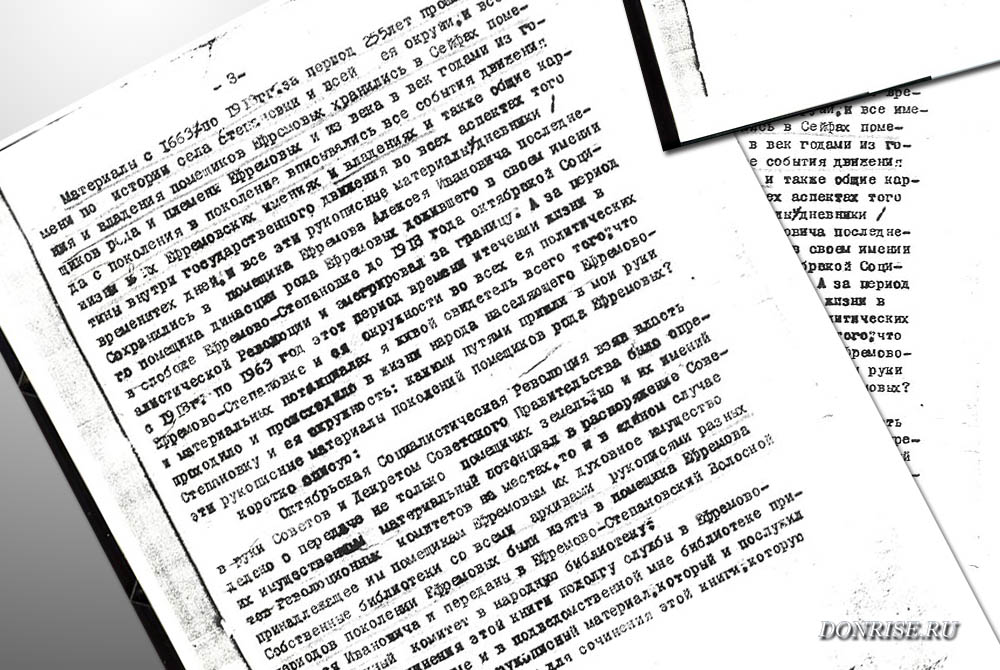 -3-
Материалы с 1663/по 1913гг.за период 255лет
мени по истории села Степановки и всей ея округи,и все
ния и владения помещиков Ефремовых хранились в Сейфах поме-
щиков рода и племени Ефремовых и из века в век годами из го-
да с поколения в поколение вписывались все события движения
жизни в их Ефремовских имениях и владениях и также общие кар-
тины внутри государственного движения во всех аспектах того
временитех дней,и все эти рукописные материалы/дневники /
Сохранились в помещика Ефремова Алексея Ивановича последне-
го помещика династии рода Ефремовых дожившего в своем имении
в слободе Ефремово-Степановке до 1918 года октябрской Соци-
алистической Революции и эмегрировал за границу. А за период
с 1913г. по 1963 год этот период времени итечении жизни в
Ефремово-Степановке и ея окружности во всех ея политических
и материальных потанциалах я живой свидетель всего того,что
проходило и происходило в жизни народа населяющего Ефремово-
Степановку и ея окружность: какими путями пришли в мои руки
эти рукописные материалы поколений помещиков рода Ефремовых?
коротко описую:
Октябрьская Социалистическая Революция взяв власть
в руки Советов и Декретом Советского Правительства было опре-
делено о передаче не только помещичих земель,но и их имений
их имущественным материальный потанциал в распоряжение Сове-
тов Революционных комитетов на местах,то и в едином случае
принадлежащее им помещикам Ефремовым их духовное имущество
Собственные библиотеки со всеми архивами рукописями разных
периодов поколений Ефремовых были изяты в помещика Ефремова
Ивановича и переданы в Ефремово-Степановский Волосной
комитет в народную библиотеку:
этой книги подолгу службы в Ефремово-
и в подведомственной мне библиотеке при-
материал,который и послужил
для сочинения этой книги,которую
и все име-
в Сейфах поме-
в век годами из го-
события движения
и также общие кар-
аспектах того
/дневники /
последне-
в своем имении
Соци-
А за период
жизни в
что
руки
DONRISE.RU